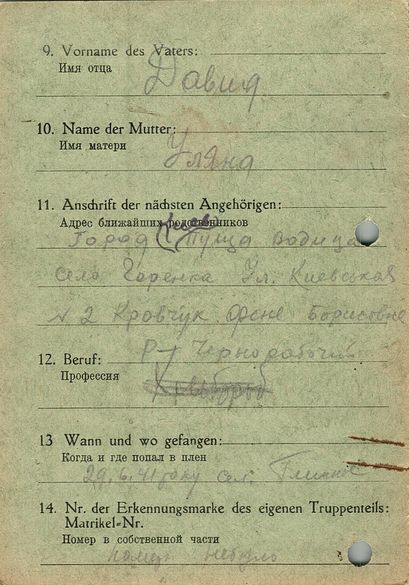 9. Vorname des Vaters:
Имя отца
Давид
10. Name der Mutter:
Имя матери
Уляна
11. Anschrift der nächsten Angehörigen:
Адрес ближайших родственников
Город Киев Пуща Водица
село Горенка Ул. Киевская
N 2 Кровчук Фене Борисовне
12. Beruf: Чернорабочий
Профессия
13 Wann und wo gefangen:
Когда и где попал в плен
29.6.41 року сел.
14. Nr. der Erkennungsmarke des eigenen Truppenteils:
Matrikel-Nr.
Номер в собственной части
номер небуло